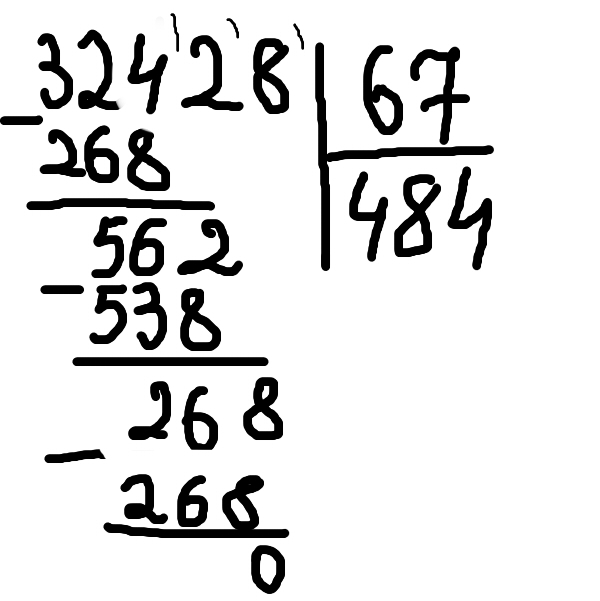 32428 67
268 484
562
538
268
268
0